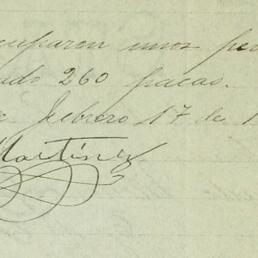 cuparon unos pe
ado 260 pacas.
Febrero 17 de 1
Martínez